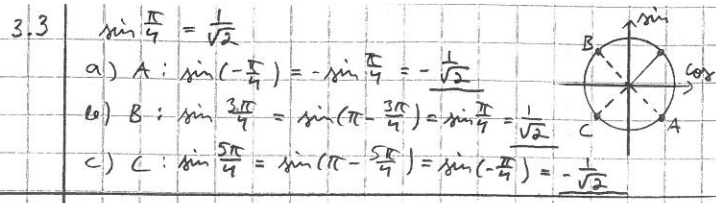 3.3 sin π/4 = 1/√2
sin
cos
a) A : sin(-π/4) = -sin π/4 = -1/√2
b) B : sin 3π/4 = sin(π - 3π/4) = sin π/4 = 1/√2
c) C : sin 5π/4 = sin(π - 5π/4) = sin(-π/4) = -1/√2
B
C
A